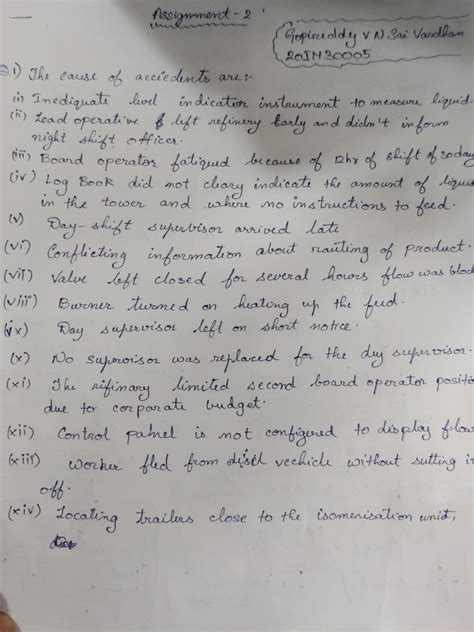 Assignment - 2
Gopireddy V N Sai Vardhan
20IM30005
1) The cause of acciedents are:-
(i) Inediquate level indicator instrument to measure liquid.
(ii) Load operative left refinery Early and didn't inform
night shift officer.
(iii) Board operator fatigued because of 12hr of shift of 30 day
(iv) Log Book did not cleary indicate the amount of liquid
in the tower and where no instructions to feed.
(v) Day-shift supervisor arrived late
(vi) Conflicting information about routing of product.
(vii) Valve left closed for several hours flow was block
(viii) Burner turned on heating up the feed.
(ix) Day supervisor left on short notice.
(x) No supervisor was replaced for the day supervisor.
(xi) The rifinary limited second board operator positio
due to corporate budget.
(xii) Control panel is not configured to display flow
(xiii) Worker fled from disel vechicle without setting it
off.
(xiv) Locating trailers close to the isomerisation unit,